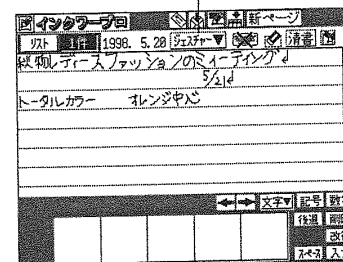 インクワープロ 新ページ
リスト 1件 1998. 5.20 ジェスチャー▼ 清書
秋物レディースファッションのミィーティング↲
5/21↲
トータルカラー オレンジ中心
← → 文字▼ 記号 数
後退 削
改行
スペース 入